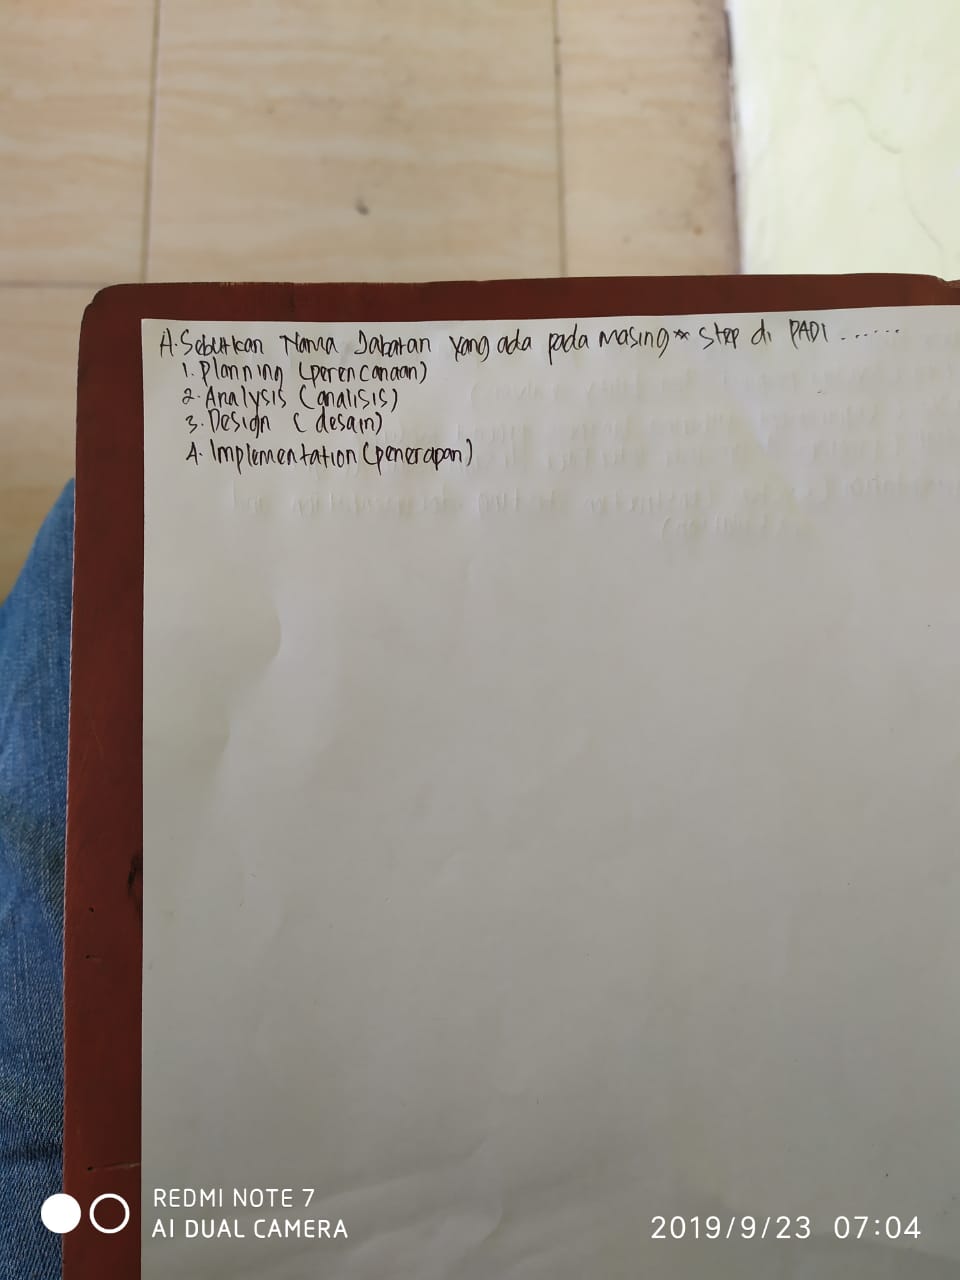 A. Sebutkan Nama Jabatan yang ada pada masing" step di PADI ......
1. Planning (perencanaan)
2. Analysis (analisis)
3. Design (desain)
4. Implementation (penerapan)
REDMI NOTE 7
AI DUAL CAMERA
2019/9/23 07:04